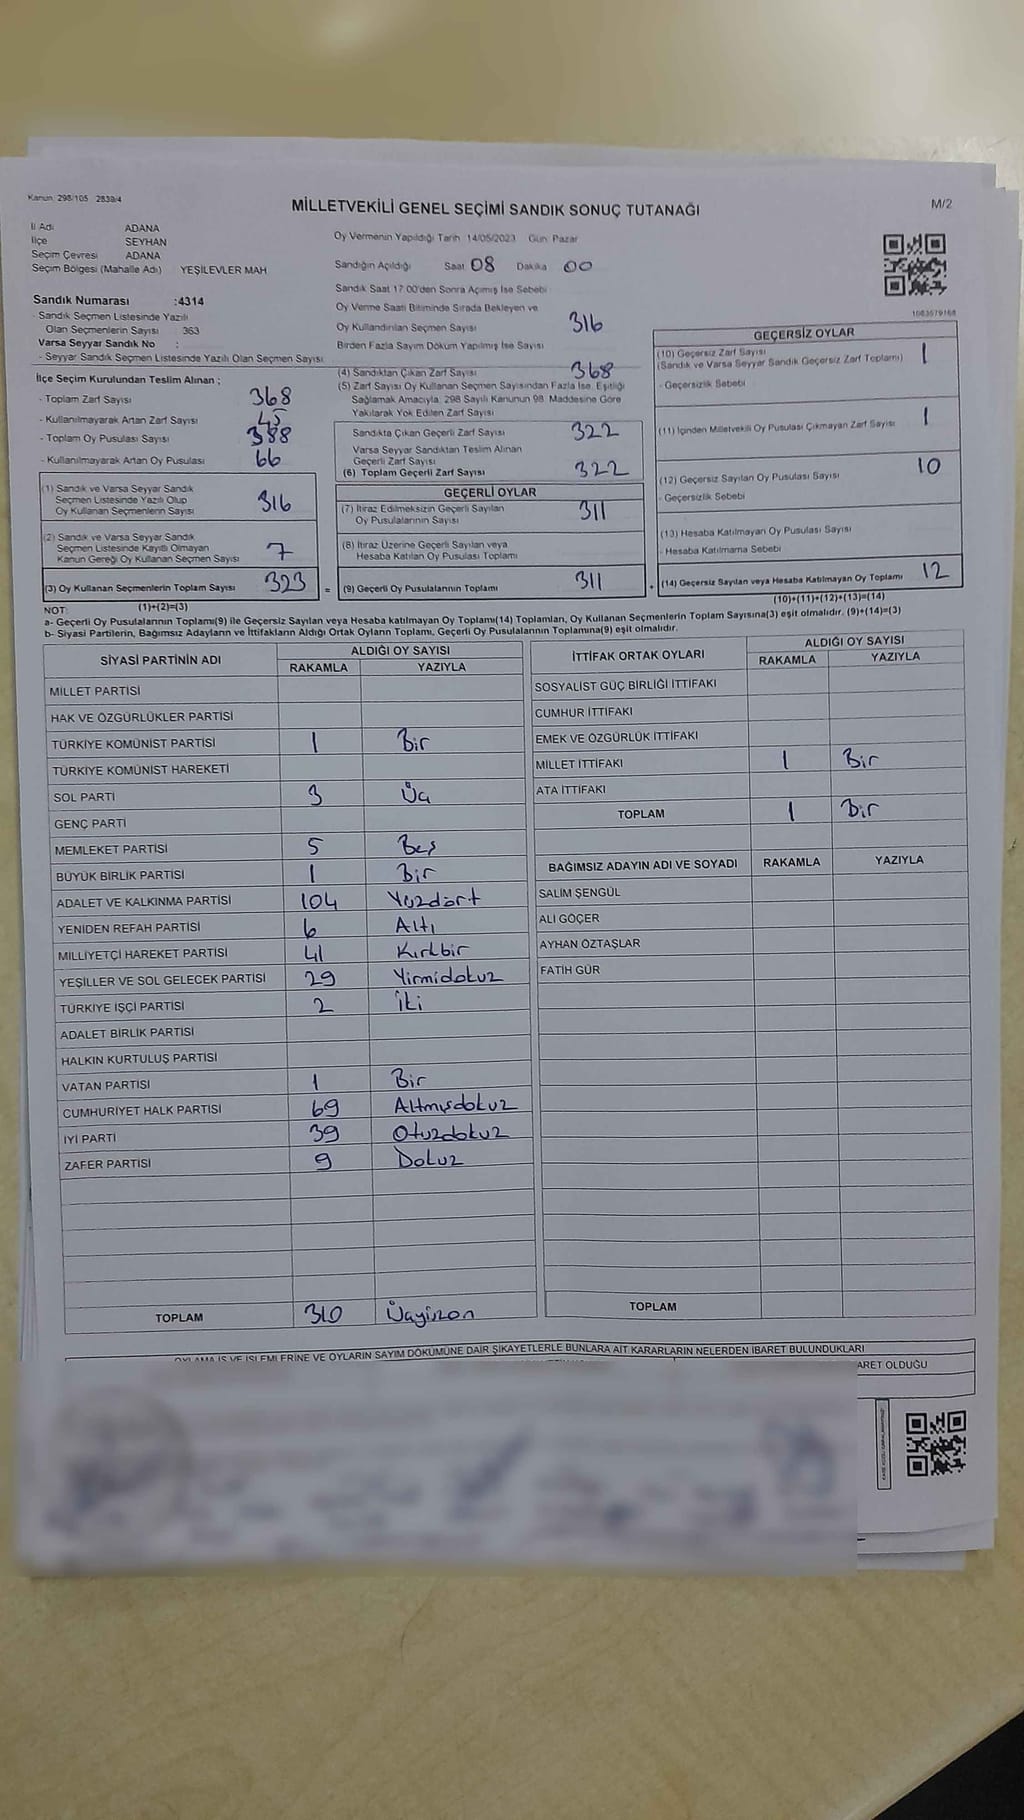 Kanun: 298/105 2839/4
MİLLETVEKİLİ GENEL SEÇİMİ SANDIK SONUÇ TUTANAĞI
M/2
İl Adı ADANA
İlçe SEYHAN
Seçim Çevresi ADANA
Seçim Bölgesi (Mahalle Adı) YEŞİLEVLER MAH
Sandık Numarası :4314
- Sandık Seçmen Listesinde Yazılı
Olan Seçmenlerin Sayısı : 363
Varsa Seyyar Sandık No :
- Seyyar Sandık Seçmen Listesinde Yazılı Olan Seçmen Sayısı
İlçe Seçim Kurulundan Teslim Alınan ;
- Toplam Zarf Sayısı 368
- Kullanılmayarak Artan Zarf Sayısı 45
- Toplam Oy Pusulası Sayısı 388
- Kullanılmayarak Artan Oy Pusulası 66
(1) Sandık ve Varsa Seyyar Sandık
Seçmen Listesinde Yazılı Olup
Oy Kullanan Seçmenlerin Sayısı 316
(2) Sandık ve Varsa Seyyar Sandık
Seçmen Listesinde Kayıtlı Olmayan
Kanun Gereği Oy Kullanan Seçmen Sayısı 7
(3) Oy Kullanan Seçmenlerin Toplam Sayısı 323
(1)+(2)=(3)
Oy Vermenin Yapıldığı Tarih 14/05/2023 Gün: Pazar
Sandığın Açıldığı Saat 08 Dakika 00
Sandık Saat 17:00'den Sonra Açılmış İse Sebebi
Oy Verme Saati Bitiminde Sırada Bekleyen ve
Oy Kullandırılan Seçmen Sayısı 316
Birden Fazla Sayım Döküm Yapılmış İse Sayısı
(4) Sandıktan Çıkan Zarf Sayısı 368
(5) Zarf Sayısı Oy Kullanan Seçmen Sayısından Fazla İse, Eşitliği
Sağlamak Amacıyla, 298 Sayılı Kanunun 98. Maddesine Göre
Yakılarak Yok Edilen Zarf Sayısı
Sandıkta Çıkan Geçerli Zarf Sayısı 322
Varsa Seyyar Sandıktan Teslim Alınan
Geçerli Zarf Sayısı
(6) Toplam Geçerli Zarf Sayısı 322
GEÇERLİ OYLAR
(7) İtiraz Edilmeksizin Geçerli Sayılan
Oy Pusulalarının Sayısı 311
(8) İtiraz Üzerine Geçerli Sayılan veya
Hesaba Katılan Oy Pusulası Toplamı
= (9) Geçerli Oy Pusulalarının Toplamı 311
1083579168
GEÇERSİZ OYLAR
(10) Geçersiz Zarf Sayısı 1
(Sandık ve Varsa Seyyar Sandık Geçersiz Zarf Toplamı)
- Geçersizlik Sebebi
(11) İçinden Milletvekili Oy Pusulası Çıkmayan Zarf Sayısı 1
(12) Geçersiz Sayılan Oy Pusulası Sayısı 10
- Geçersizlik Sebebi
(13) Hesaba Katılmayan Oy Pusulası Sayısı
- Hesaba Katılmama Sebebi
+ (14) Geçersiz Sayılan veya Hesaba Katılmayan Oy Toplamı 12
(10)+(11)+(12)+(13)=(14)
NOT:
a- Geçerli Oy Pusulasının Toplamı(9) ile Geçersiz Sayılan veya Hesaba katılmayan Oy Toplamı(14) Toplamları, Oy Kullanan Seçmenlerin Toplam Sayısına(3) eşit olmalıdır. (9)+(14)=(3)
b- Siyasi Partilerin, Bağımsız Adayların ve İttifakların Aldığı Ortak Oyların Toplamı, Geçerli Oy Pusulalarının Toplamına(9) eşit olmalıdır.
SİYASİ PARTİNİN ADI ALDIĞI OY SAYISI
RAKAMLA YAZIYLA
MİLLET PARTİSİ
HAK VE ÖZGÜRLÜKLER PARTİSİ
TÜRKİYE KOMÜNİST PARTİSİ 1 Bir
TÜRKİYE KOMÜNİST HAREKETİ
SOL PARTİ 3 Üç
GENÇ PARTİ
MEMLEKET PARTİSİ 5 Beş
BÜYÜK BİRLİK PARTİSİ 1 Bir
ADALET VE KALKINMA PARTİSİ 104 Yüzdört
YENİDEN REFAH PARTİSİ 6 Altı
MİLLİYETÇİ HAREKET PARTİSİ 41 Kırkbir
YEŞİLLER VE SOL GELECEK PARTİSİ 29 Yirmidokuz
TÜRKİYE İŞÇİ PARTİSİ 2 İki
ADALET BİRLİK PARTİSİ
HALKIN KURTULUŞ PARTİSİ
VATAN PARTİSİ 1 Bir
CUMHURİYET HALK PARTİSİ 69 Altmışdokuz
İYİ PARTİ 39 Otuzdokuz
ZAFER PARTİSİ 9 Dokuz
TOPLAM 310 Üçyüzon
İTTİFAK ORTAK OYLARI ALDIĞI OY SAYISI
RAKAMLA YAZIYLA
SOSYALİST GÜÇ BİRLİĞİ İTTİFAKI
CUMHUR İTTİFAKI
EMEK VE ÖZGÜRLÜK İTTİFAKI
MİLLET İTTİFAKI 1 Bir
ATA İTTİFAKI
TOPLAM 1 Bir
BAĞIMSIZ ADAYIN ADI VE SOYADI RAKAMLA YAZIYLA
SALİM ŞENGÜL
ALİ GÖÇER
AYHAN ÖZTAŞLAR
FATİH GÜR
TOPLAM
OYLAMA İŞ VE İŞLEMLERİNE VE OYLARIN SAYIM DÖKÜMÜNE DAİR ŞİKAYETLERLE BUNLARA AİT KARARLARIN NELERDEN İBARET BULUNDUKLARI
ARET OLDUĞU